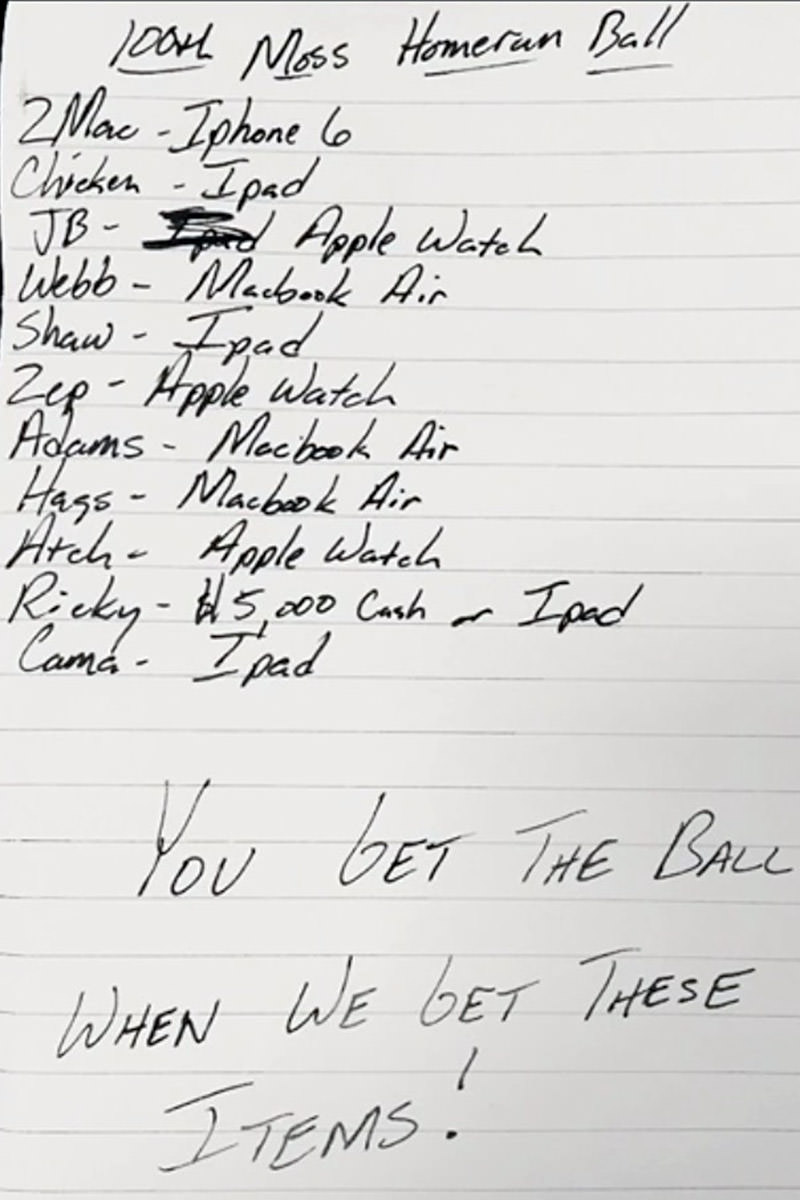 100th Moss Homerun Ball
ZMac - Iphone 6
Chicken - Ipad
JB - Ipad Apple Watch
Webb - Macbook Air
Shaw - Ipad
Zep - Apple Watch
Adams - Macbook Air
Hags - Macbook Air
Atch - Apple Watch
Ricky - $15,000 Cash or Ipad
Cama - Ipad
YOU GET THE BALL
WHEN WE GET THESE
ITEMS!